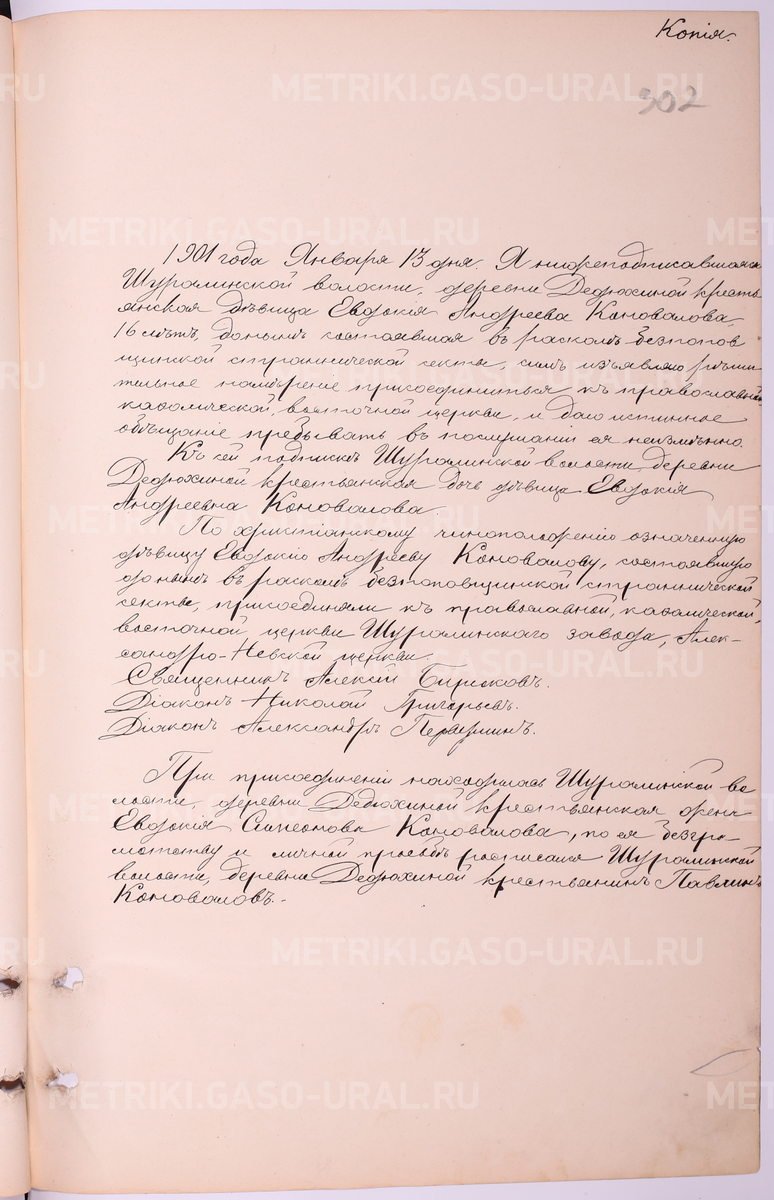 Копія.
302
1901 года Января 13 дня. Я нижеподписавшаяся
Шуралинской волости, деревни Дедюхиной кресть
янская дѣвица Евдокія Андреева Коновалова,
16 лѣтъ, донынѣ состоявшая въ расколѣ безпопов
щинской страннической секты, симъ изъявляю рѣши
тельное намѣреніе присоединиться къ православной
каѳолической, восточной церкви, и даю истинное
обѣщаніе пребывать въ послушаніи ея неизмѣнно.
Къ сей подпискѣ Шуралинской волости, деревни
Дедюхиной крестьянская дочь дѣвица Евдокія
Андреевна Коновалова.
По христіанскому чиноположенію означенную
дѣвицу Евдокію Андрееву Коновалову, состоявшую
донынѣ въ расколѣ безпоповщинской страннической
секты, присоединяли къ православной, каѳолической,
восточной церкви Шуралинскаго завода, Алек-
сандро-Невской церкви.
Священникъ Алексій
Діаконъ Николай Григорьевъ.
Діаконъ Александръ Первушинъ.
При присоединеніи находилась Шуралинской во
лости, деревни Дедюхиной крестьянская жена
Евдокія Симеонова Коновалова, по ея безгра
мотству и личной просьбѣ росписался Шуралинской
волости, деревни Дедюхиной крестьянинъ Павлинъ
Коноваловъ.
METRIKI.GASO-URAL.RU